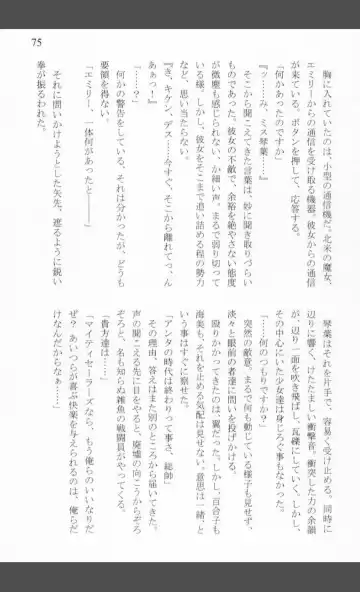 75
胸に入れていたのは、小型の通信機だ。北米の魔女、
エミリーからの通信を受け取る機器。彼女からの通信
が来ている。ボタンを押して、応答する。
「何かあったのですか」
『ッ……み、ミス琴葉……』
そこから聞こえてきた言葉は、妙に聞き取りづらい
ものであった。彼女の不敵で、余裕を絶やさない態度
が微塵も感じられない、か細い声。まるで弱り切って
いる様。しかし、彼女をそこまで追い詰める程の勢力
など、思い当たらない。
『き、キケン、デス……今すぐ、そこから離れてっ、ん
あぁっ！』
「……？」
何かの警告をしている、それは分かったが、どうも
要領を得ない。
「エミリー、一体何があったと――」
それに問いかけようとした矢先、遮るように鋭い
拳が振るわれた。
琴葉はそれを片手で、容易く受け止める。同時に
辺りに響く、けたたましい衝撃音。衝突した力の余韻
が、辺り一面を吹き飛ばし、瓦礫にしていく。しかし、
その中心にいた少女達は身じろぐ事もなかった。
「……何のつもりですか？」
突然の敵意、まるで何も動じている様子も見せず、
淡々と眼前の者達に問いを投げかける。
殴りかかってきたのは、翼だった。しかし、百合子も
海美も、それを止める気配は見せない。意思は一緒、と
いう事はすぐに察せた。
「アンタの時代は終わりって事さ、総帥」
その理由、答えはまた別のところから届いてきた。
声の聞こえる先に目をやると、廃墟の向こうからぞろ
ぞろと、名も知らぬ雑魚の戦闘員がやってくる。
「貴方達は……」
「マイティセーラーズなら、もう俺らのいいなりだ
ぜ？ あいつらが喜ぶ快楽を与えられるのは、俺らだ
けなんだからなぁ……」